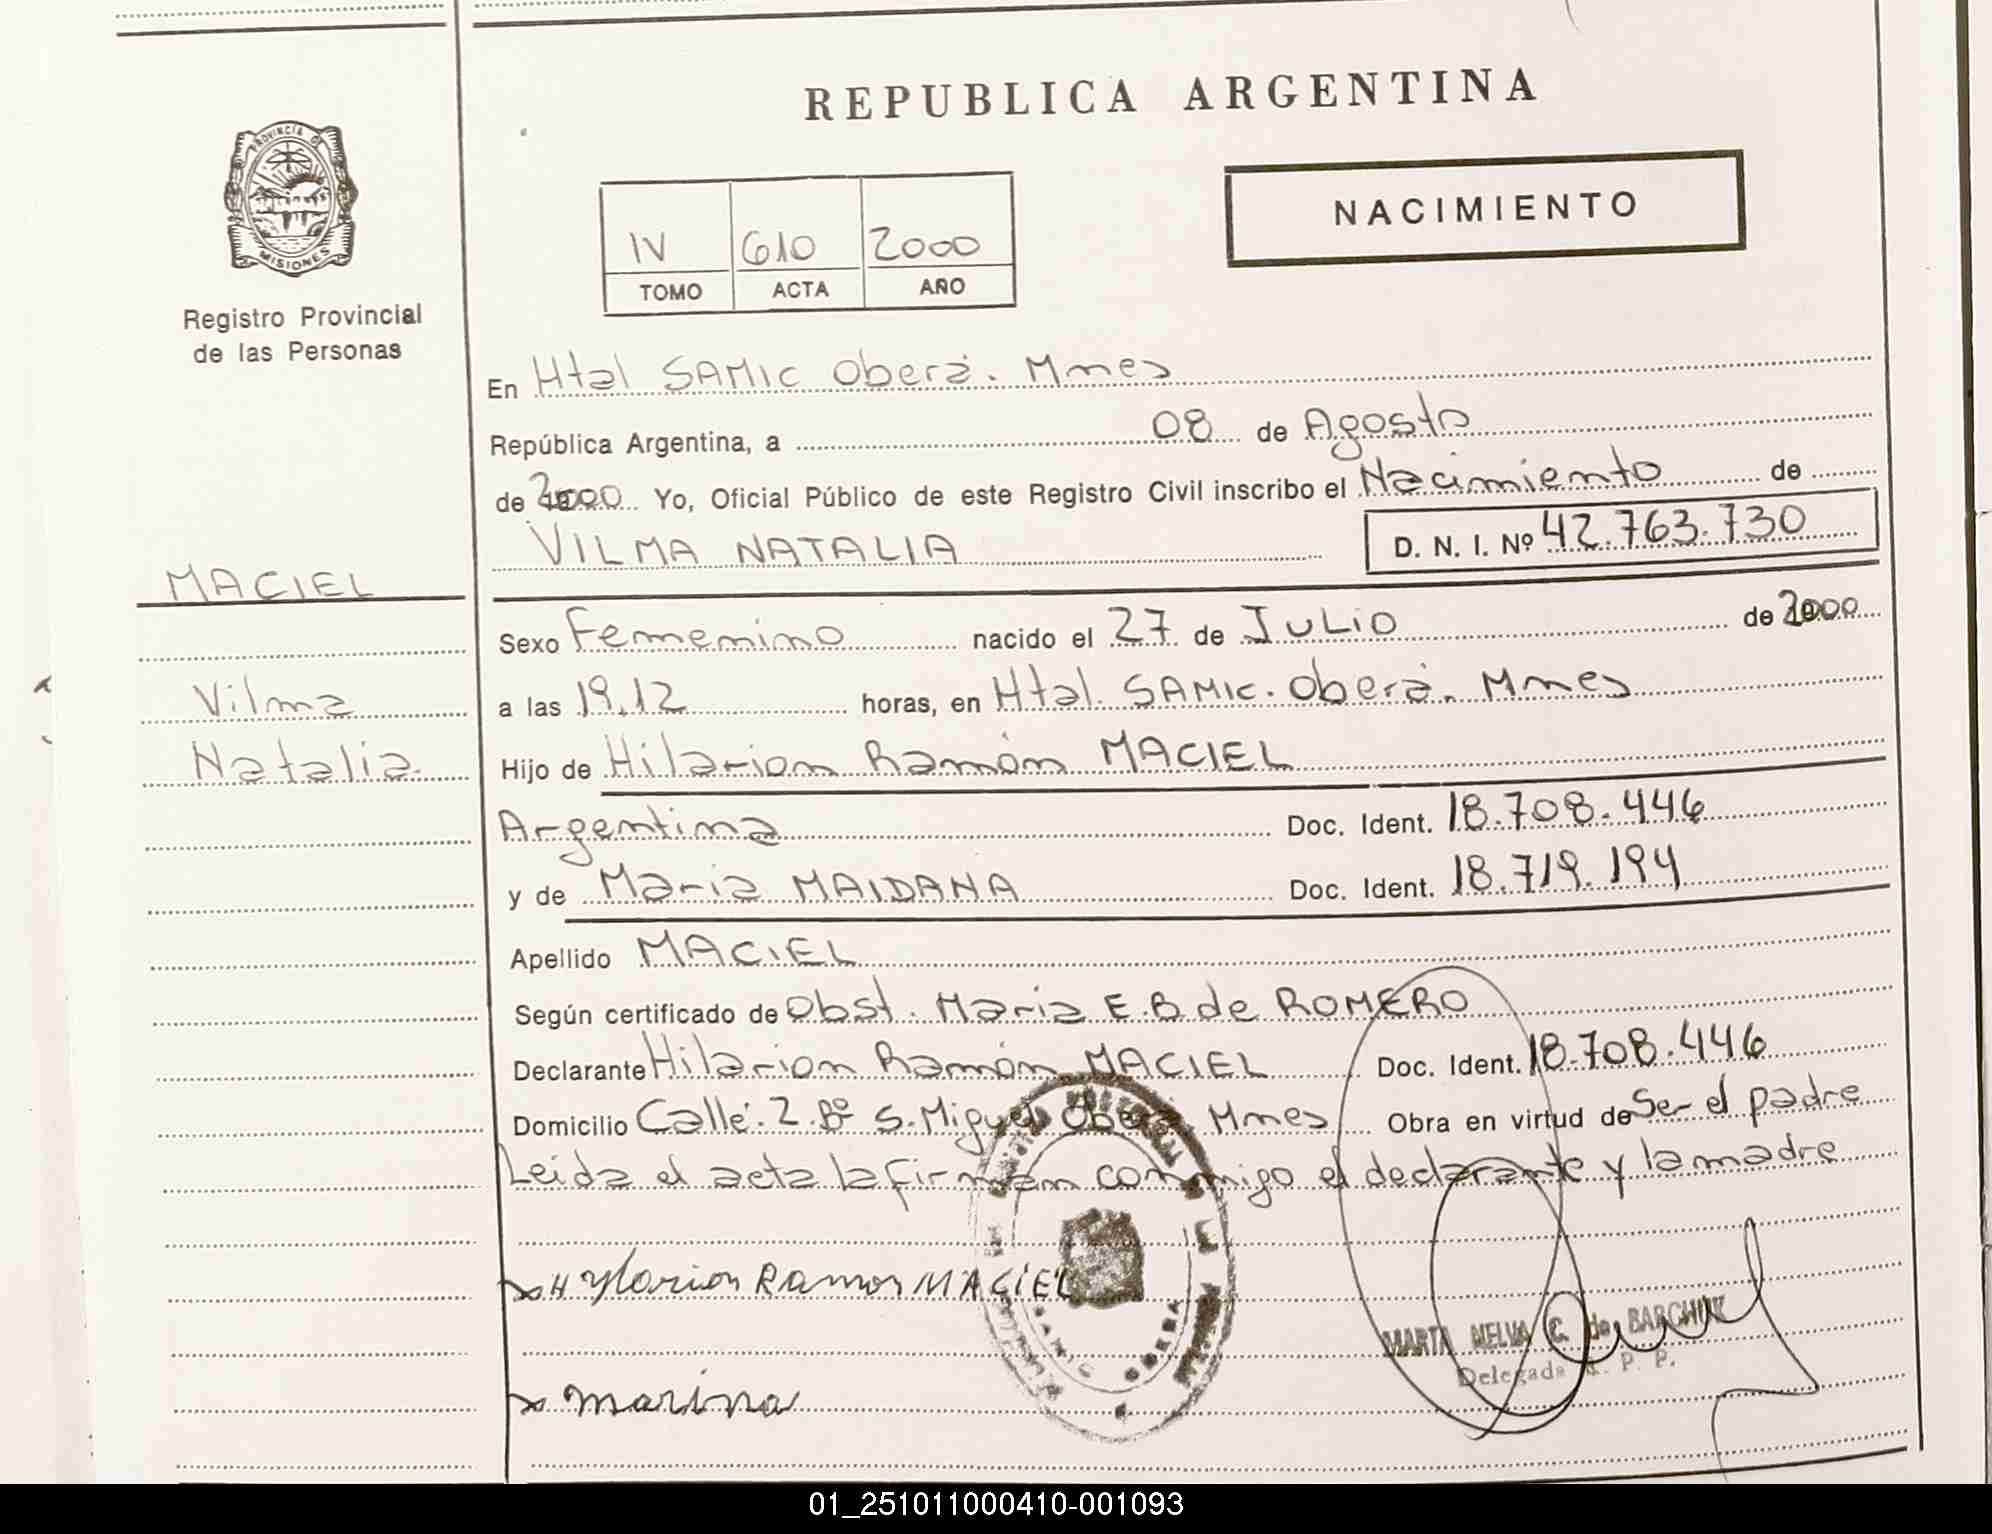 REPUBLICA ARGENTINA
PROVINCIA D
MISIONES
Registro Provincial
de las Personas
NACIMIENTO
IV 610 2000
TOMO ACTA AÑO
En Htal SAMIC Oberá. Mnes
República Argentina, a 08 de Agosto
de 2000 Yo, Oficial Público de este Registro Civil inscribo el Nacimiento de
VILMA NATALIA D. N. I. Nº 42.763.730
MACIEL
Sexo Femenino nacido el 27 de JULIO de 2000
Vilma
a las 19,12 horas, en Htal. SAMIC. Oberá. Mnes
Natalia.
Hijo de Hilarion Ramón MACIEL
Argentina Doc. Ident. 18.708.446
y de Maria MAIDANA Doc. Ident. 18.719.194
Apellido MACIEL
Según certificado de Obst. Maria E.B de ROMERO
Declarante Hilarion Ramón MACIEL Doc. Ident. 18.708.446
Domicilio Calle: 2. Bº S. Miguel Oberá Mnes Obra en virtud de Ser el padre
Leida el acta la firman conmigo el declarante y la madre
x H ylarion Ramon MACIEL
MARTA MELVA C. de BARCHUK
Delegada R. P. P.
OBERA
x marina
01_251011000410-001093